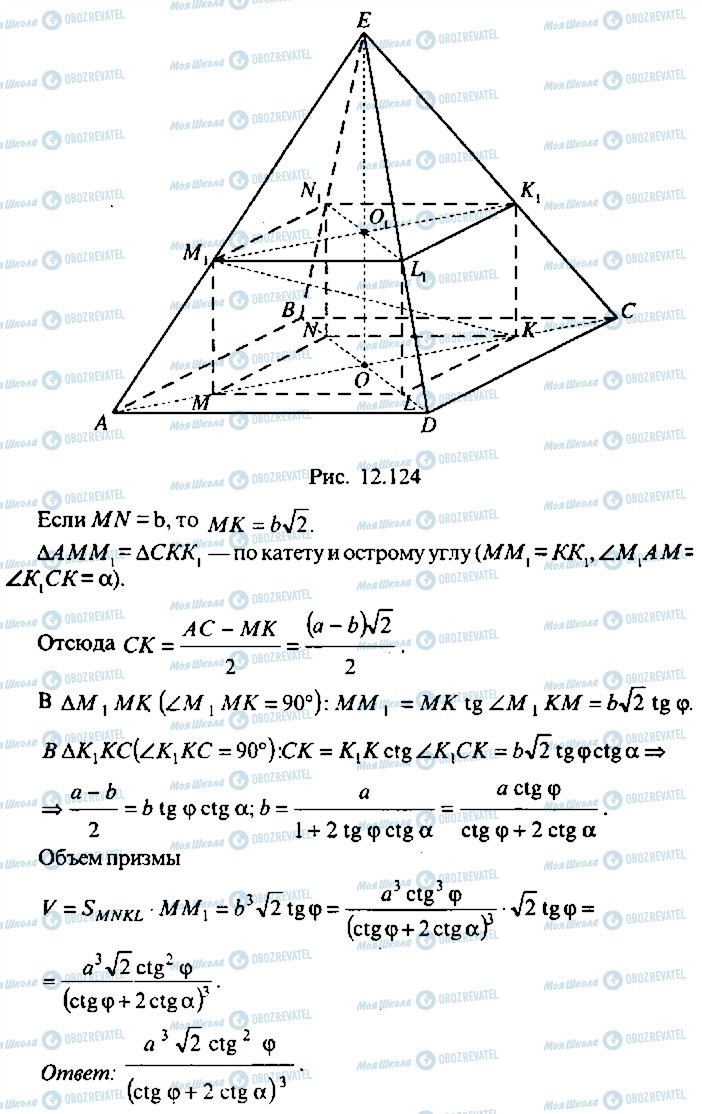 E
N₁
K₁
O₁
M₁
L₁
B
C
N
K
O
M
L
A
D
Рис. 12.124
Если MN = b, то MK = b√2.
ΔAMM₁ = ΔCKK₁ — по катету и острому углу (MM₁ = KK₁, ∠M₁AM =
∠K₁CK = α).
Отсюда CK = (AC − MK)/2 = ((a − b)√2)/2.
В ΔM₁MK (∠M₁MK = 90°): MM₁ = MK tg ∠M₁KM = b√2 tg φ.
В ΔK₁KC(∠K₁KC = 90°):CK = K₁K ctg ∠K₁CK = b√2 tg φ ctg α ⇒
⇒ (a − b)/2 = b tg φ ctg α; b = a/(1 + 2 tg φ ctg α) = (a ctg φ)/(ctg φ + 2 ctg α).
Объем призмы
V = S_MNKL · MM₁ = b³√2 tg φ = (a³ ctg³ φ)/(ctg φ + 2 ctg α)³ · √2 tg φ =
= (a³√2 ctg² φ)/(ctg φ + 2 ctg α)³.
Ответ: (a³ √2 ctg² φ)/(ctg φ + 2 ctg α)³.
МояШкола OBOZREVATEL